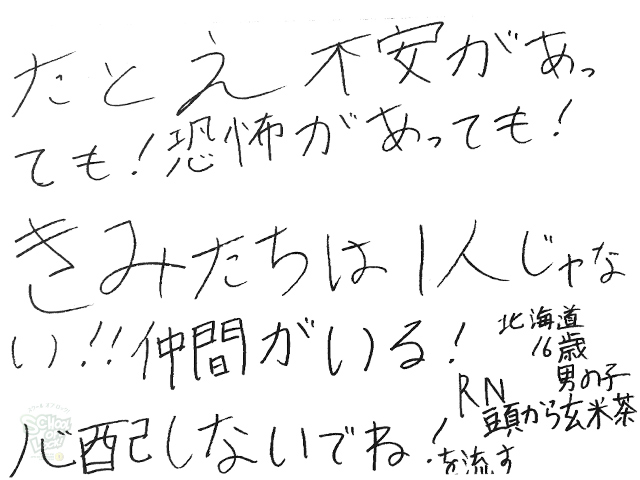 たとえ 不安があっ
ても！恐怖があっても！
きみたちは1人じゃな
い！！仲間がいる！
心配しないでね！
北海道
16歳
男の子
RN
頭から玄米茶
を流す